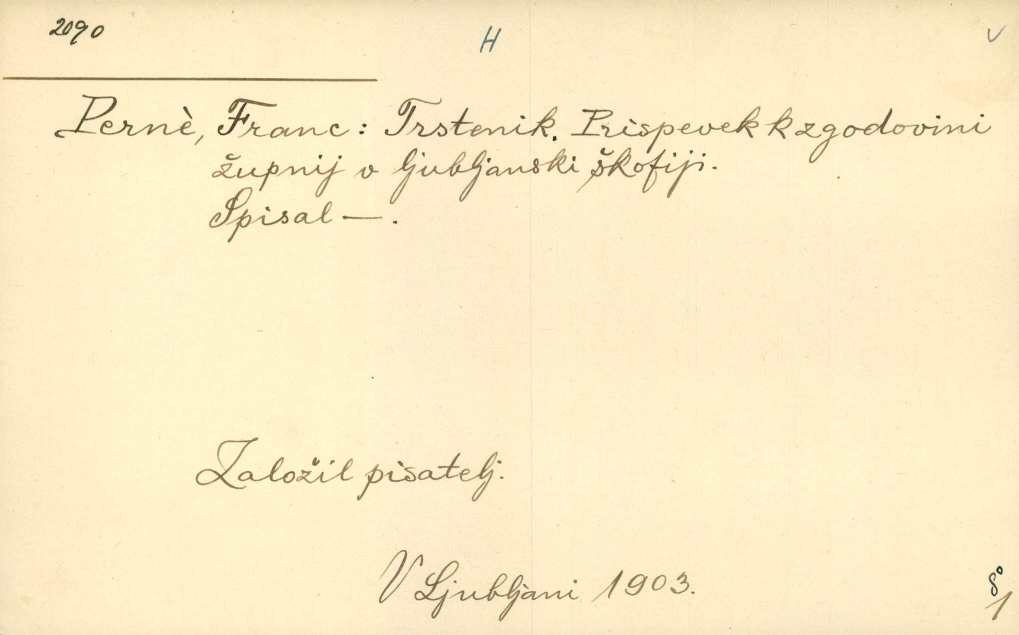 2090
H
V
Pernè, Franc: Trstenik. Prispevek k zgodovini
župnij v ljubljanski škofiji.
Spisal —.
Založil pisatelj.
V Ljubljani 1903.
8°
1